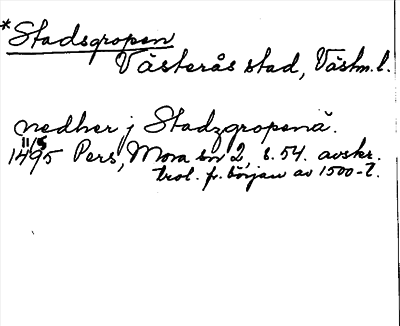 *Stadsgropen
Västerås stad, Västm. l.
nedher j Stadzgropenä.
11/5
1495 Pers, Mora sn 2, s. 54. avskr.
trol. fr. början av 1500-t.